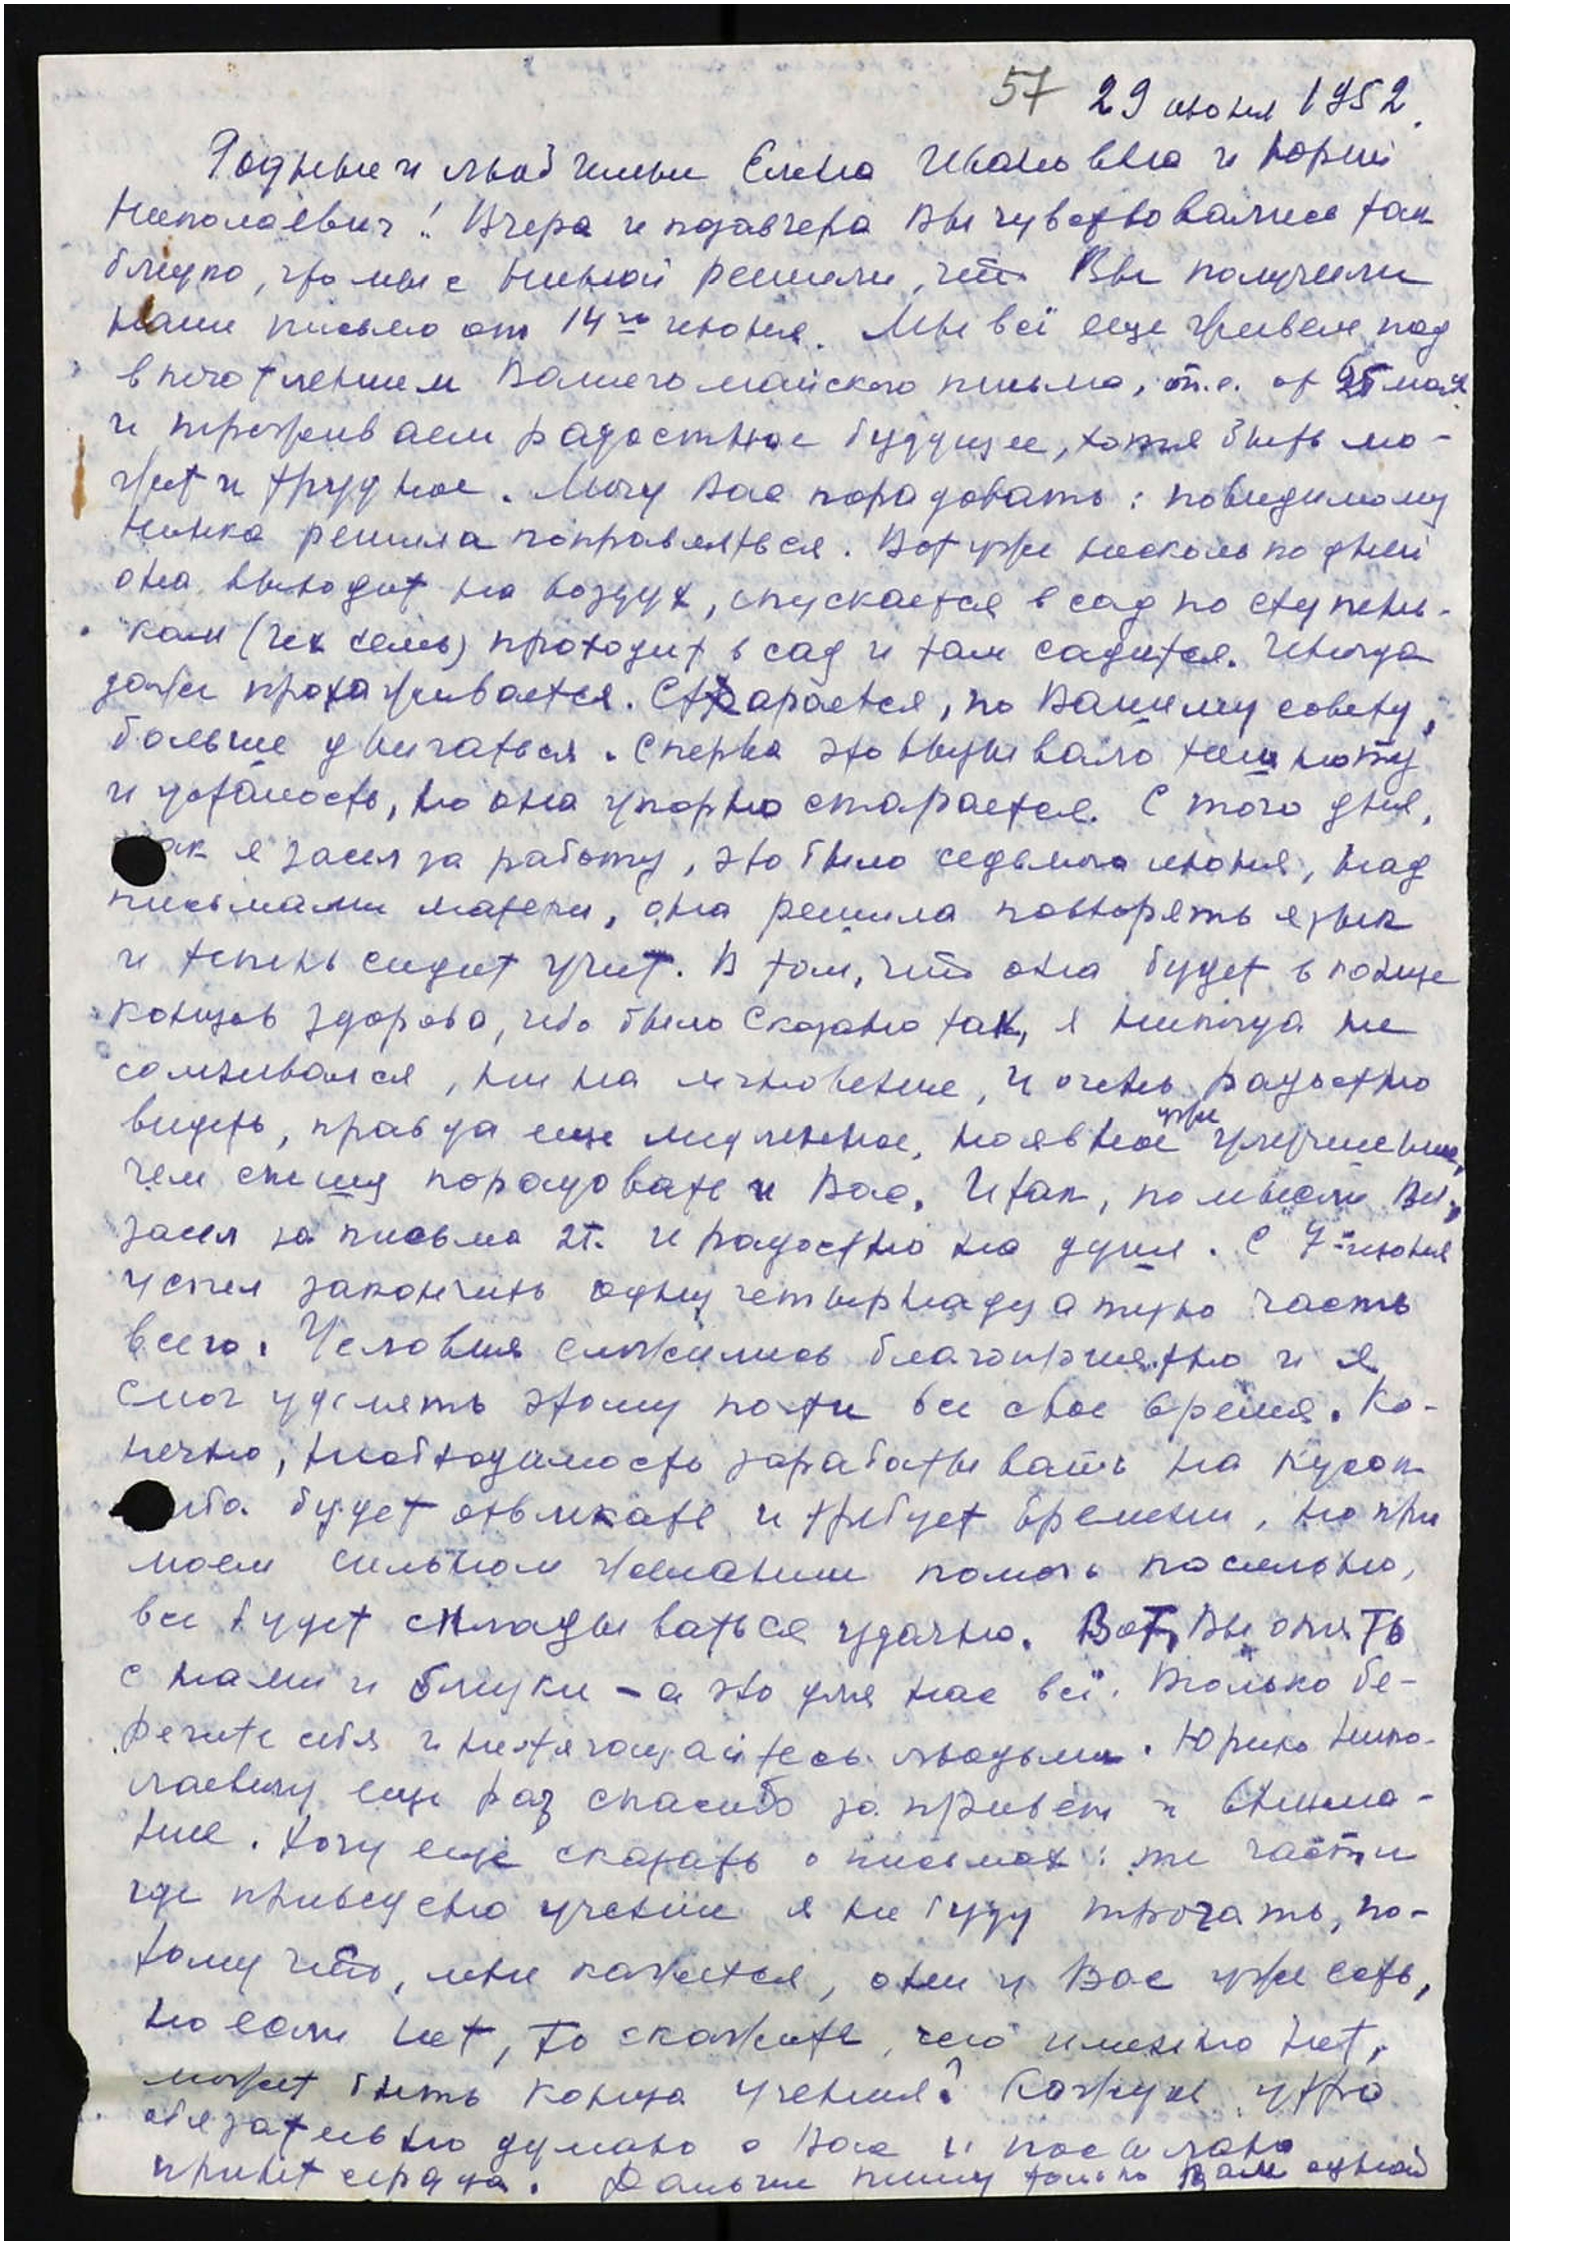 57 29 июня 1952.
Родные и любимые Елена Ивановна и Юрий
Николаевич! Вчера и позавчера Вы чувствовались так
близко, что мы с Ниной решили, что Вы получили
наше письмо от 14го июня. Мы всё еще живем под
впечатлением Вашего майского письма, т.е. от 25 мая
и переживаем радостное будущее, хотя быть мо-
жет и трудное. Могу Вас порадовать: повидимому
Нинка решила поправляться. Вот уже несколько дней
она выходит на воздух, спускается в сад по ступень-
кам (их семь) проходит в сад и там садится. Иногда
даже прохаживается. Старается, по Вашему совету,
больше двигаться. Сперва это вызывало тошноту
и усталость, но она упорно старается. С того дня,
как я засел за работу, это было седьмого июня, над
письмами матери, она решила повторять язык
и теперь сидит учит. В том, что она будет в конце
концов здорова, ибо было сказано так, я никогда не
сомневался, ни на мгновение, и очень радостно
видеть, правда еще медленное, но явное уже улучшение,
чем спешу порадовать и Вас. Итак, по мысли Вл.,
засел за письма Z. и радостно на душе. С 7-июня
успел закончить одну четырнадцатую часть
всего. Условия сложились благоприятно и я
смог уделять этому почти все свое время. Ко-
нечно, необходимость зарабатывать на кусок
хлеба будет отвлекать и требует времени, но при
моем сильном желании помочь посильно,
все будет складываться удачно. Вот, Вы опять
с нами и близки - а это для нас всё. Только бе-
регите себя и не отягощайтесь людьми. Юрию Нико-
лаевичу еще раз спасибо за привет и внима-
ние. Хочу еще сказать о письмах: те части
где приведено учение я не буду трогать, по-
тому что, мне кажется, они у Вас уже есть,
но если нет, то скажите, чего именно нет,
может быть конца учения? Каждое утро
обязательно думаю о Вас и посылаю
привет сердца. Дальше пишу только Вам одной